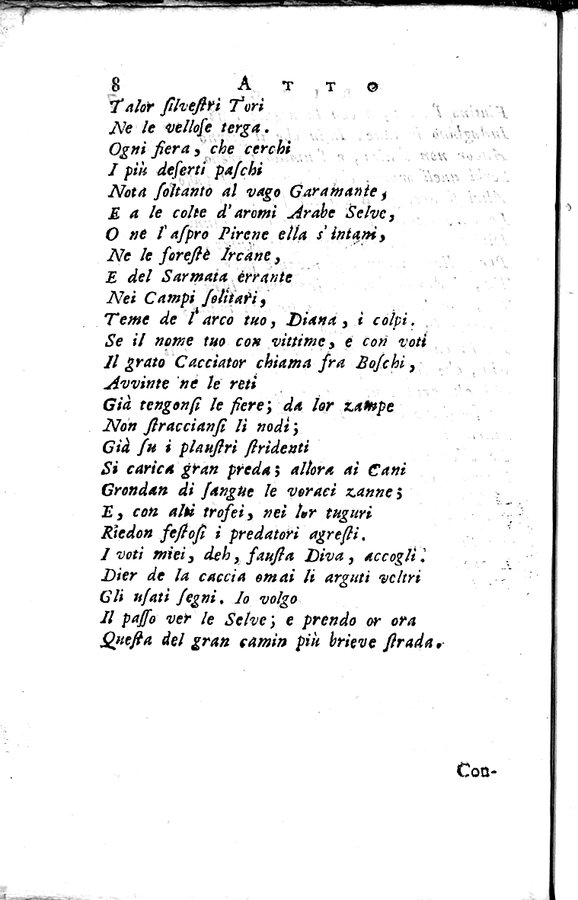 8 A T T O
Talor ſilveſtri Tori
Ne le velloſe terga.
Ogni fiera, che cerchi
I più deſerti paſchi
Nota ſoltanto al vago Garamante,
E a le colte d'aromi Arabe Selve,
O ne l'aſpro Pirene ella s'intani,
Ne le foreſtè Ircane,
E del Sarmata errante
Nei Campi ſolitari,
Teme de l'arco tuo, Diana, i colpi.
Se il nome tuo con vittime, e con voti
Il grato Cacciator chiama fra Boſchi,
Avvinte ne le reti
Già tengonſi le fiere; da lor zampe
Non ſtraccianſi li nodi;
Già ſu i plauſtri ſtridenti
Si carica gran preda; allora ai Cani
Grondan di ſangue le voraci zanne;
E, con alti trofei, nei lor tuguri
Riedon feſtoſi i predatori agreſti.
I voti miei, deh, fauſta Diva, accogli.
Dier de la caccia omai li arguti veltri
Gli uſati ſegni. Io volgo
Il paſſo ver le Selve; e prendo or ora
Queſta del gran camin più brieve ſtrada.
Con-